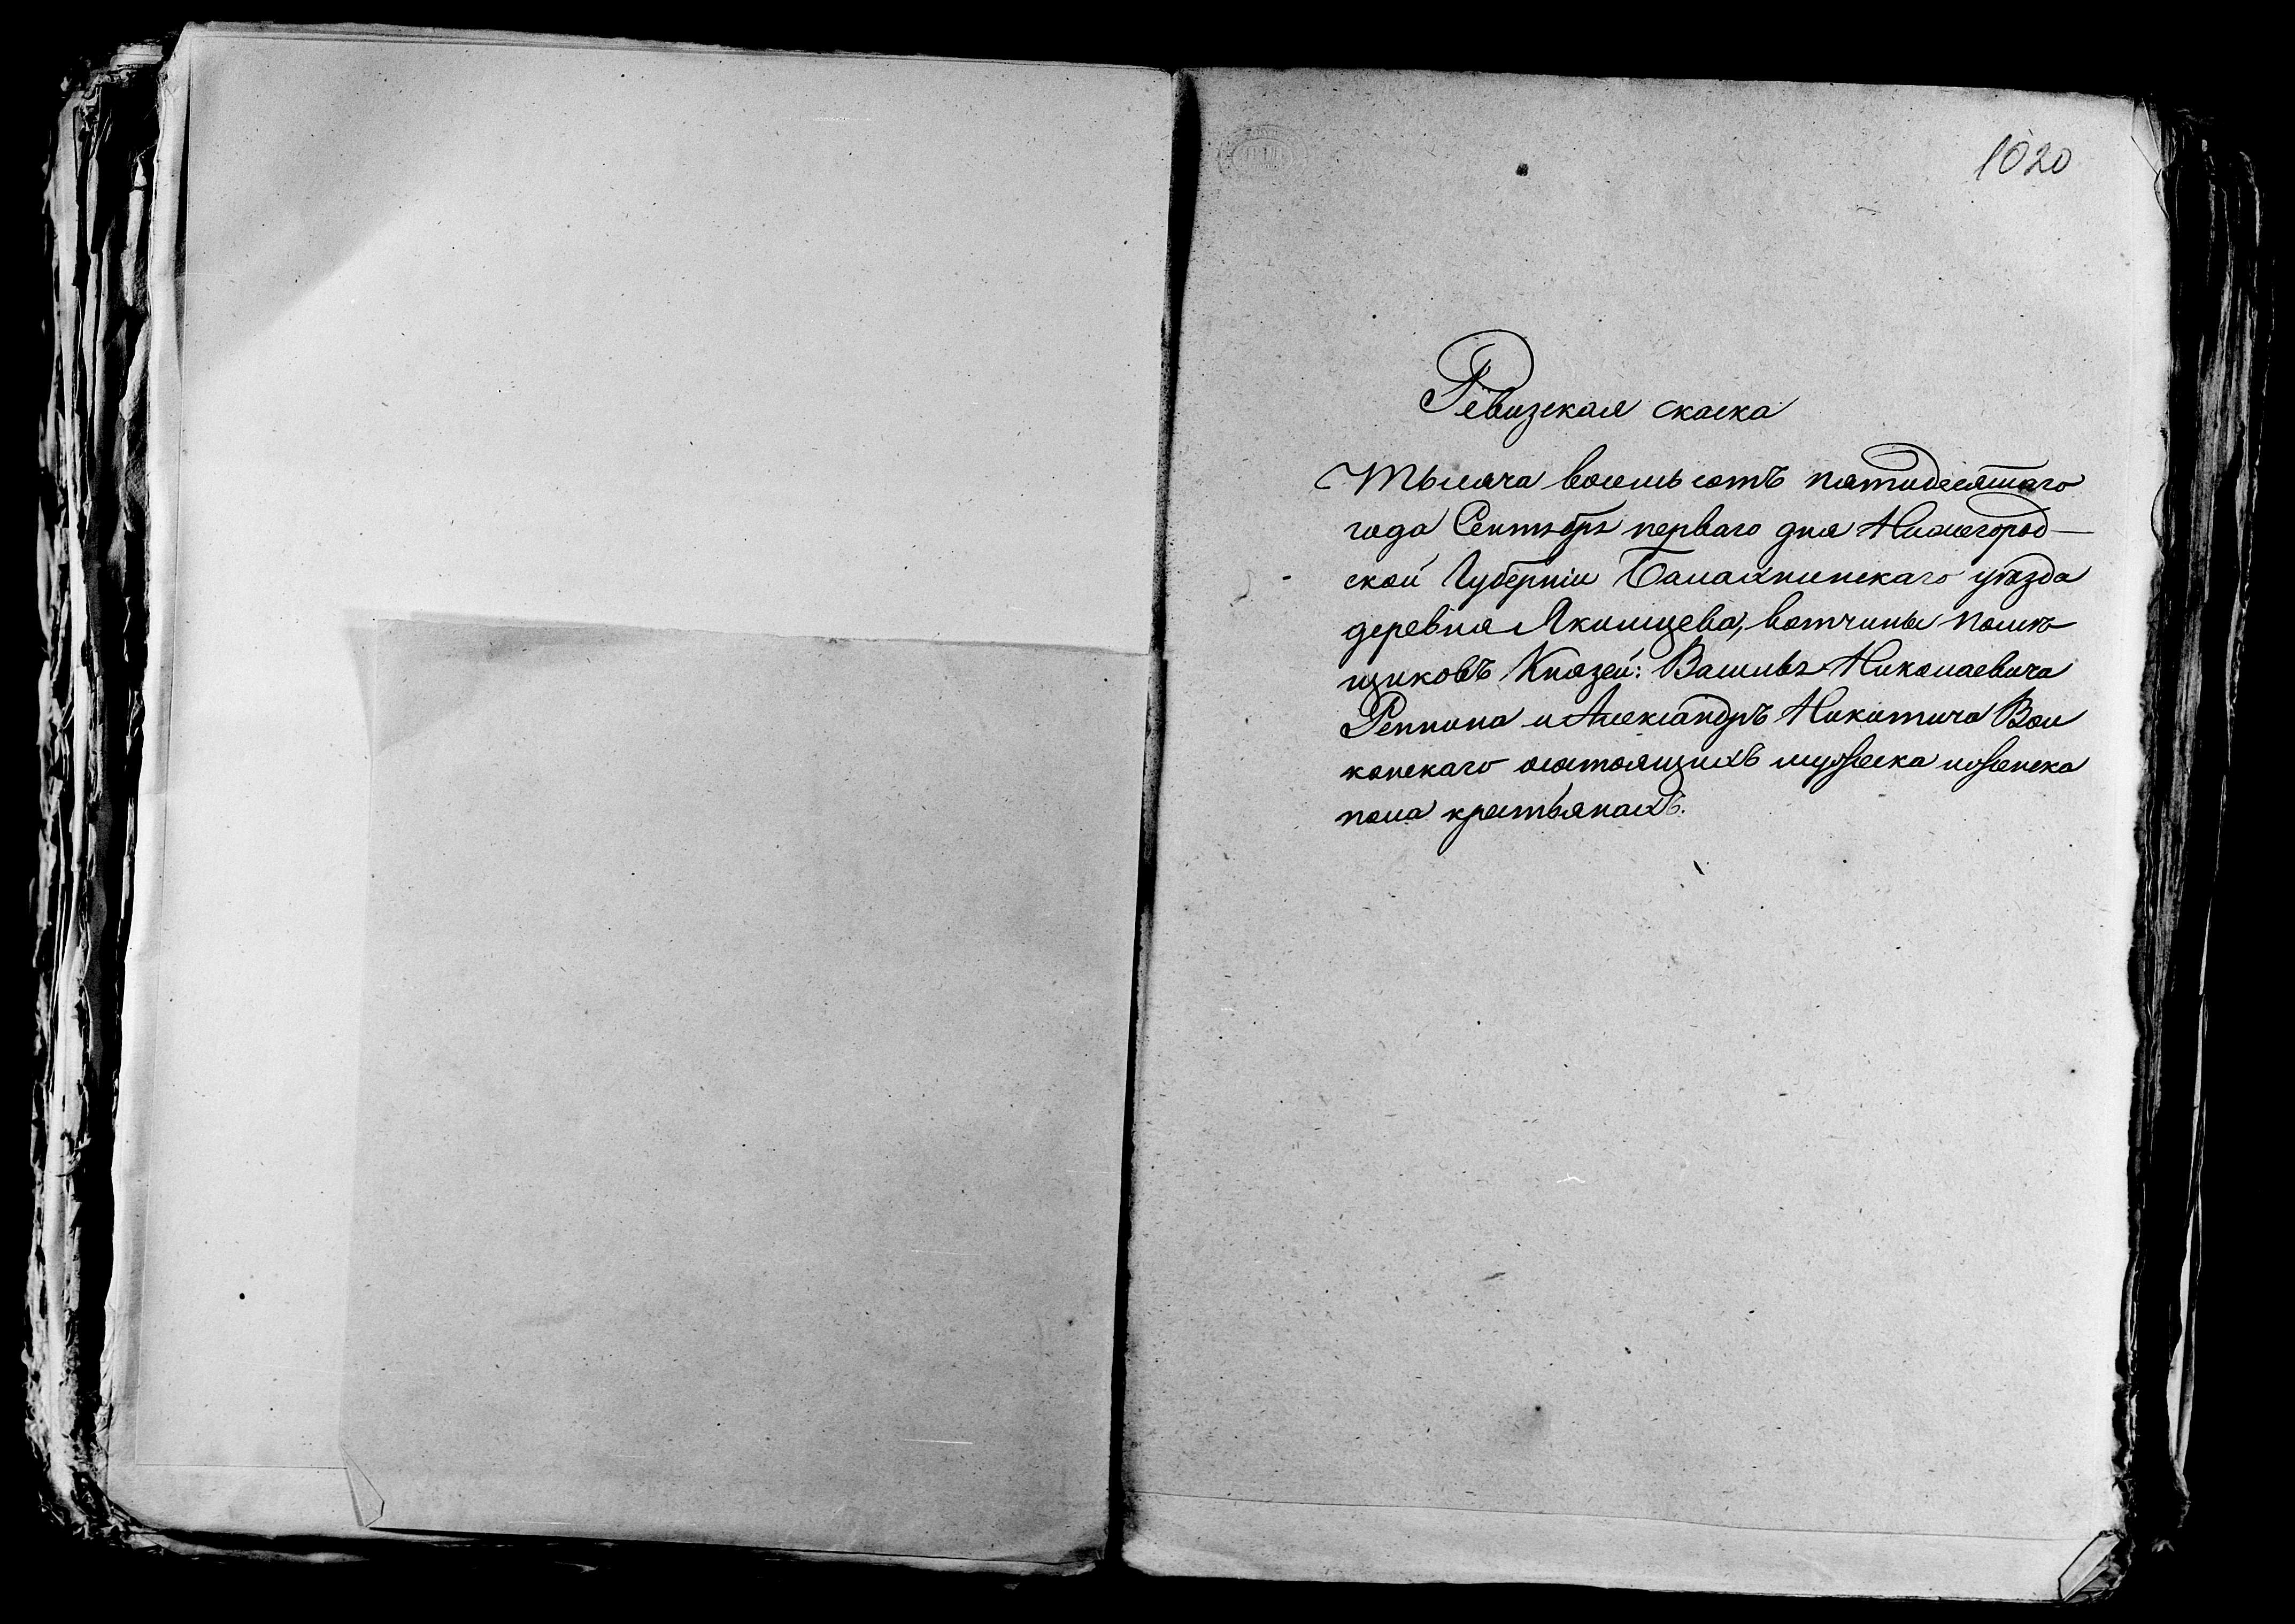 1020
Ревизская скаска
Тысяча восемь сотъ пятидесятаго
года Сентября перваго дня Нижегород-
ской Губерніи Балахнинскаго уѣзда
деревня Якимцева, вотчины помѣ
щиковъ Князей: Василья Николаевича
Репнина и Александръ Никитича Вол
конскаго осостоящихъ мужеска иженска
пола крестьянахъ.